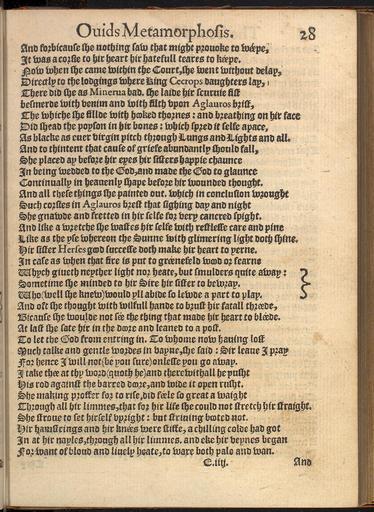 Ouids Metamorphosis. 28
And forbicause she nothing saw that might prouoke to wéepe,
It was a corsie to hir heart hir hatefull teares to kéepe.
Now when she came within the Court, she went without delay,
Directly to the lodgings where King Cecrops daughters lay,
There did she as Minerua bad. she laide hir scuruie fist
besmerde with venim and with filth vpon Aglauros brist,
The whiche she fillde with hoked thornes: and breathing on hir face
Did shead the poyson in hir bones: which spred it selfe apace,
As blacke as euer virgin pitch through Lungs and Lights and all.
And to thintent that cause of griefe abundantly should fall,
She placed ay before hir eyes hir sisters happie chaunce
In being wedded to the God, and made the God to glaunce
Continually in heauenly shape before hir wounded thought.
And all these things she painted out. which in conclusion wrought
Such corsies in Aglauros brest that sighing day and night
She gnawde and fretted in hir selfe for very cancred spight.
And like a wretche she wastes hir selfe with restlesse care and pine
Like as the yse whereon the Sunne with glimering light doth shine.
Hir sister Herses good successe doth make hir heart to yerne.
In case as when that fire is put to grénefeld wood or fearne
Whych giueth neyther light nor heate, but smulders quite away:
Sometime she minded to hir Sire hir sister to bewray.
Who (well she knew) would yll abide so lewde a part to play.
And oft she thought with wilfull hande to brust hir fatall thréede,
Bicause she woulde not sée the thing that made hir heart to bléede.
At last she sate hir in the dore and leaned to a post.
To let the God from entring in. To whome now hauing lost
Much talke and gentle wordes in vayne, she said: Sir leaue I pray
For hence I will not (be you sure) onlesse you go away.
I take thee at thy word (quoth he) and therewithall he pusht
His rod against the barred dore, and wide it open rusht.
She making proffer for to rise, did féele so great a waight
Through all hir limmes, that for hir life she could not stretch hir straight.
She stroue to set hirself vpright: but striuing booted not.
Hir hamstrings and hir knées were stiffe, a chilling colde had got
In at hir nayles, through all hir limmes. and eke hir veynes began
For want of bloud and liuely heate, to ware both pale and wan.
E.iiij. And